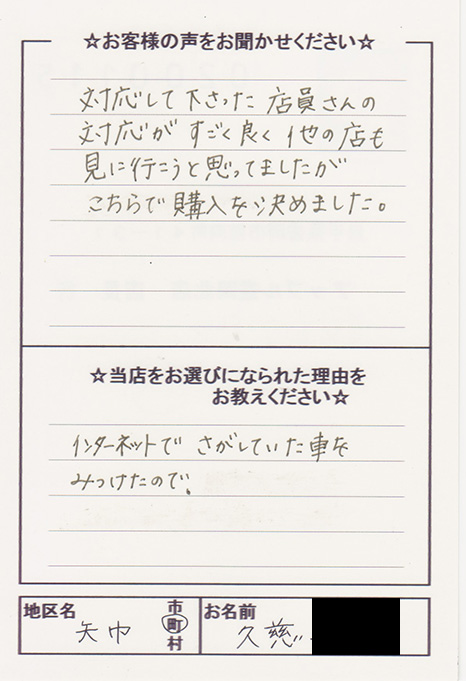 ☆お客様の声をお聞かせください☆
対応して下さった店員さんの
対応がすごく良く他の店も
見に行こうと思ってましたが
こちらで購入を決めました。
☆当店をお選びになられた理由を
お教えください☆
インターネットでさがしていた車を
みつけたので。
地区名 矢巾 市町村 お名前 久慈